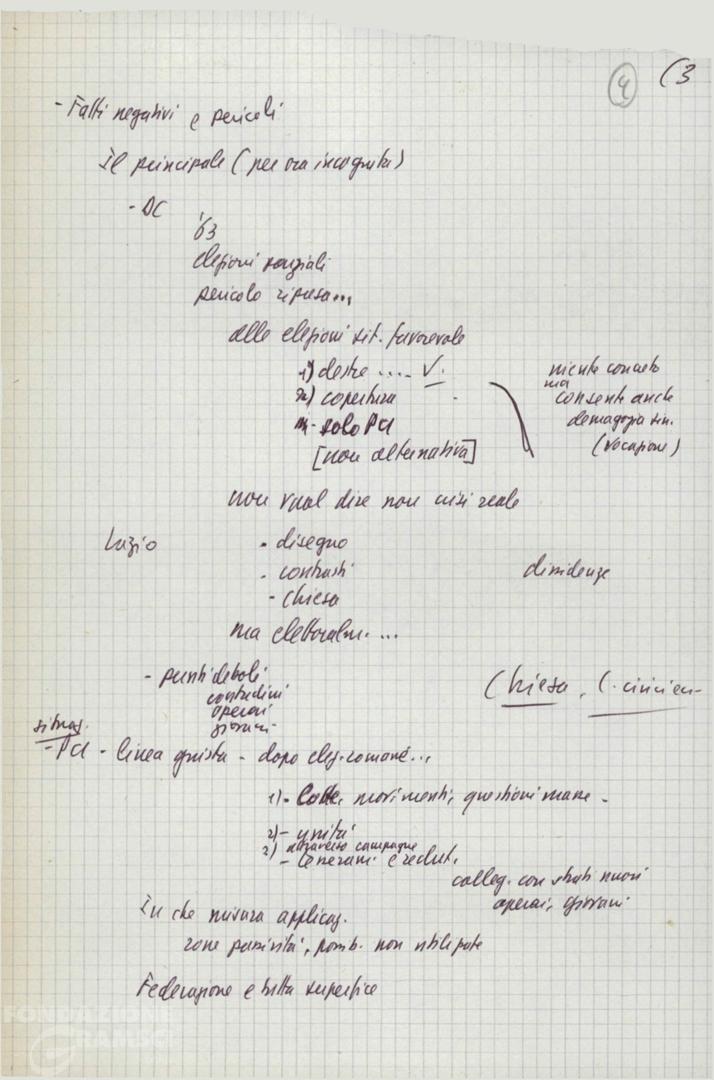 4 (3
- Fatti negativi e pericoli
Il principale (per ora incognita)
- DC
'63
elezioni parziali
pericolo ripresa...
alle elezioni sit. favorevole
1) destre .... V.
2) copertura
3) - solo PCI
[non alternativa]
niente concreto
ma
consente anche
demagogia sin.
(vocazione)
non vuol dire non crisi reale
Lazio
- disegno
- contrasti
- Chiesa
dissidenze
ma elettoralm. ...
- punti deboli
contadini
operai
giovani
Chiesa, C. civici
situaz.
- PCI - linea giusta - dopo elez. romane...
1) - Lotte, movimenti, questioni
2) - unità
3) attraverso campagne
- tesseram. e reclut.
colleg. con strati nuovi
operai, giovani
In che misura applicaz.
zone passività, non utilizzate
Federazione e tutta superfice
FONDAZIONE
GRAMSCI